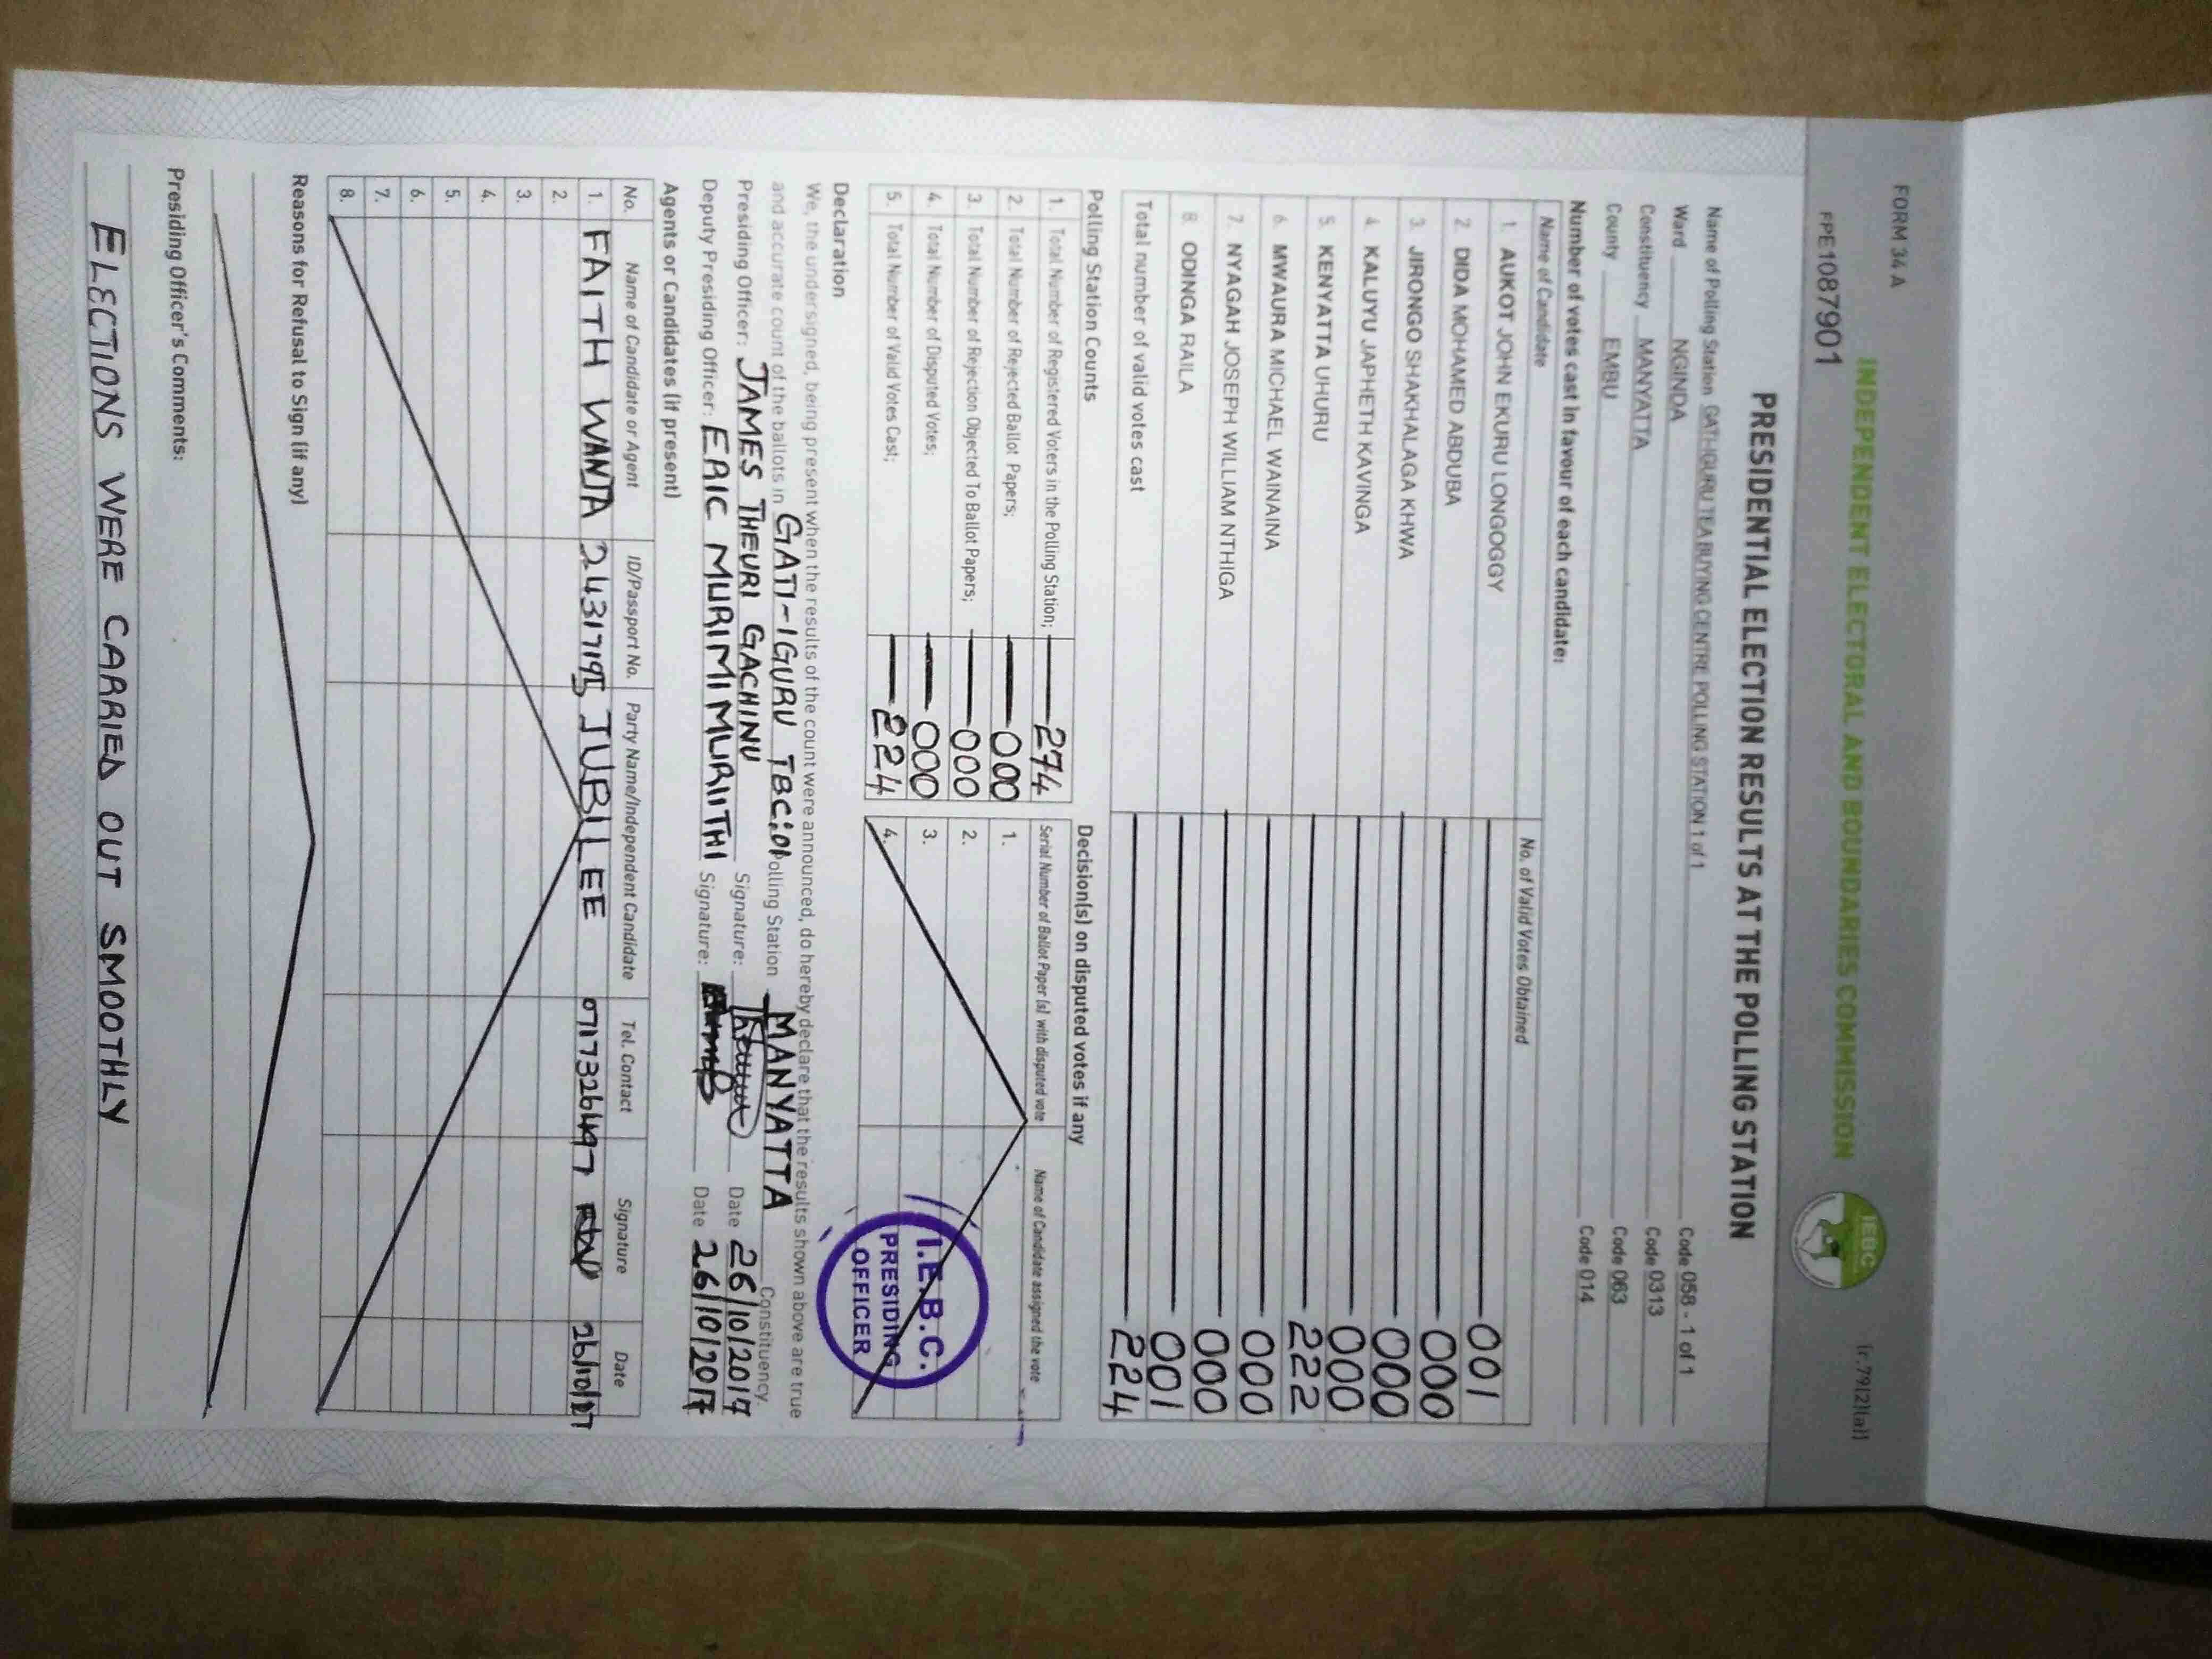 FORM 34 A
INDEPENDENT ELECTORAL AND BOUNDARIES COMMISSION
IEBC
(r.79(2)(a))
FPE1087901
PRESIDENTIAL ELECTION RESULTS AT THE POLLING STATION
Name of Polling Station GATI-IGURU TEA BUYING CENTRE POLLING STATION 1 of 1 Code 058 - 1 of 1
Ward NGINDA Code 0313
Constituency MANYATTA Code 063
County EMBU Code 014
Number of votes cast in favour of each candidate:
Name of Candidate No. of Valid Votes Obtained
1. AUKOT JOHN EKURU LONGOGGY 001
2. DIDA MOHAMED ABDUBA 000
3. JIRONGO SHAKHALAGA KHWA 000
4. KALUYU JAPHETH KAVINGA 000
5. KENYATTA UHURU 222
6. MWAURA MICHAEL WAINAINA 000
7. NYAGAH JOSEPH WILLIAM NTHIGA 000
8. ODINGA RAILA 001
Total number of valid votes cast 224
Polling Station Counts
1. Total Number of Registered Voters in the Polling Station; 274
2. Total Number of Rejected Ballot Papers; 000
3. Total Number of Rejection Objected To Ballot Papers; 000
4. Total Number of Disputed Votes; 000
5. Total Number of Valid Votes Cast; 224
Decision(s) on disputed votes if any
Serial Number of Ballot Paper (s) with disputed vote Name of Candidate assigned the vote
1.
2.
3.
4.
I.E.B.C.
PRESIDING
OFFICER
Declaration
We, the undersigned, being present when the results of the count were announced, do hereby declare that the results shown above are true
and accurate count of the ballots in GATI-IGURU TBC:01 Polling Station MANYATTA Constituency.
Presiding Officer: JAMES THEURI GACHINU Signature: Date 26/10/2017
Deputy Presiding Officer: ERIC MURIMI MURIITHI Signature: Date 26/10/2017
Agents or Candidates (if present)
No. Name of Candidate or Agent ID/Passport No. Party Name/Independent Candidate Tel. Contact Signature Date
1. FAITH WANJA JUBILEE 0717326497
2.
3.
4.
5.
6.
7.
8.
Reasons for Refusal to Sign (if any)
Presiding Officer's Comments:
ELECTIONS WERE CARRIED OUT SMOOTHLY